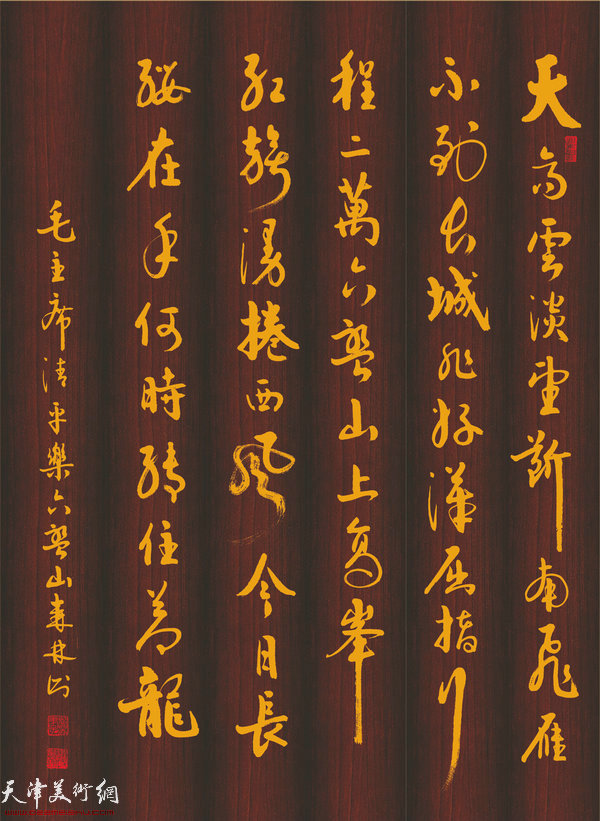 天高雲淡望斷南飛雁
不到長城非好漢屈指行
程二萬六盤山上高峯
紅旗漫捲西風今日長
纓在手何時縛住蒼龍
毛主席清平樂六盤山林書
天津美術網